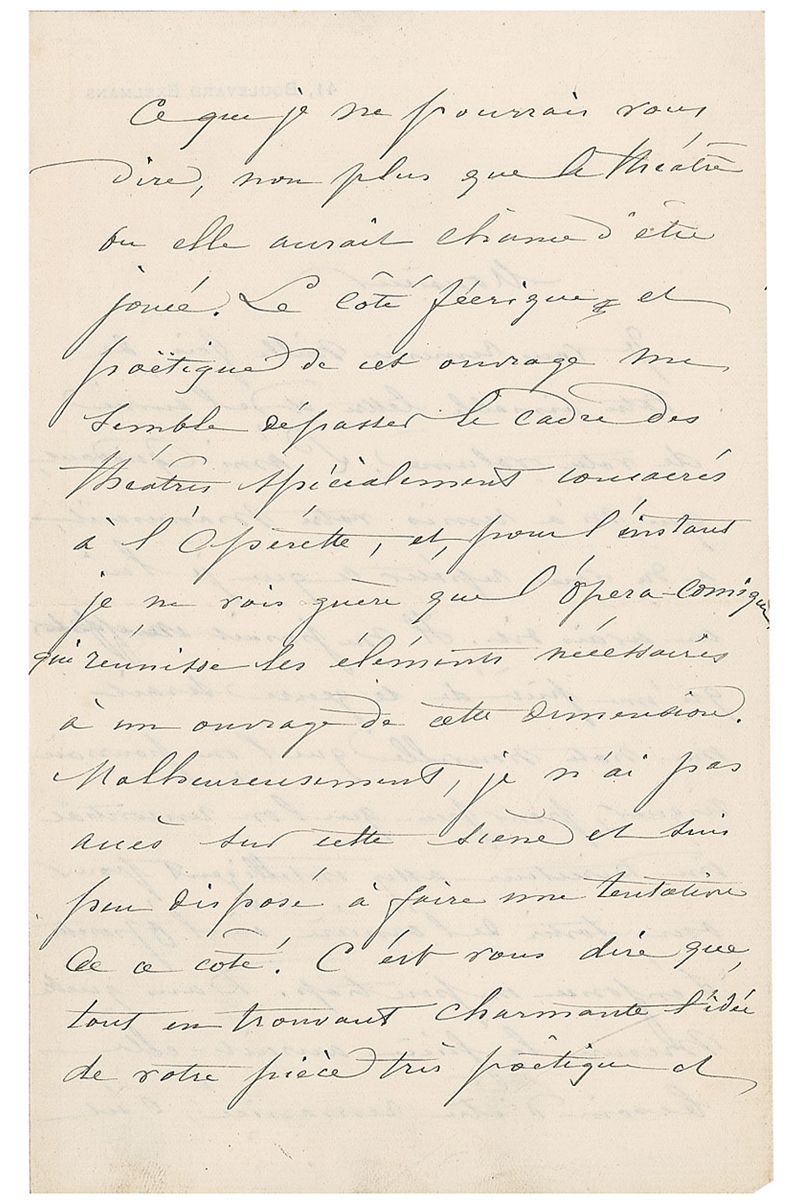 Ce que je ne pourrais vous
dire, non plus que le théâtre
ou elle aurait chance d'être
jouée. Le côté féerique et
poëtique de cet ouvrage me
semble dépasser le cadre des
théâtres spécialement consacrés
à l'Opérette, et, pour l'instant
je ne vois guère que l'Opéra-comique
qui réunisse les éléments nécessaires
à un ouvrage de cette dimension.
Malheureusement, je n'ai pas
accès sur cette scène et suis
peu disposé à faire une tentative
de ce coté. C'est vous dire que,
tout en trouvant charmante l'idée
de votre pièce très poëtique et